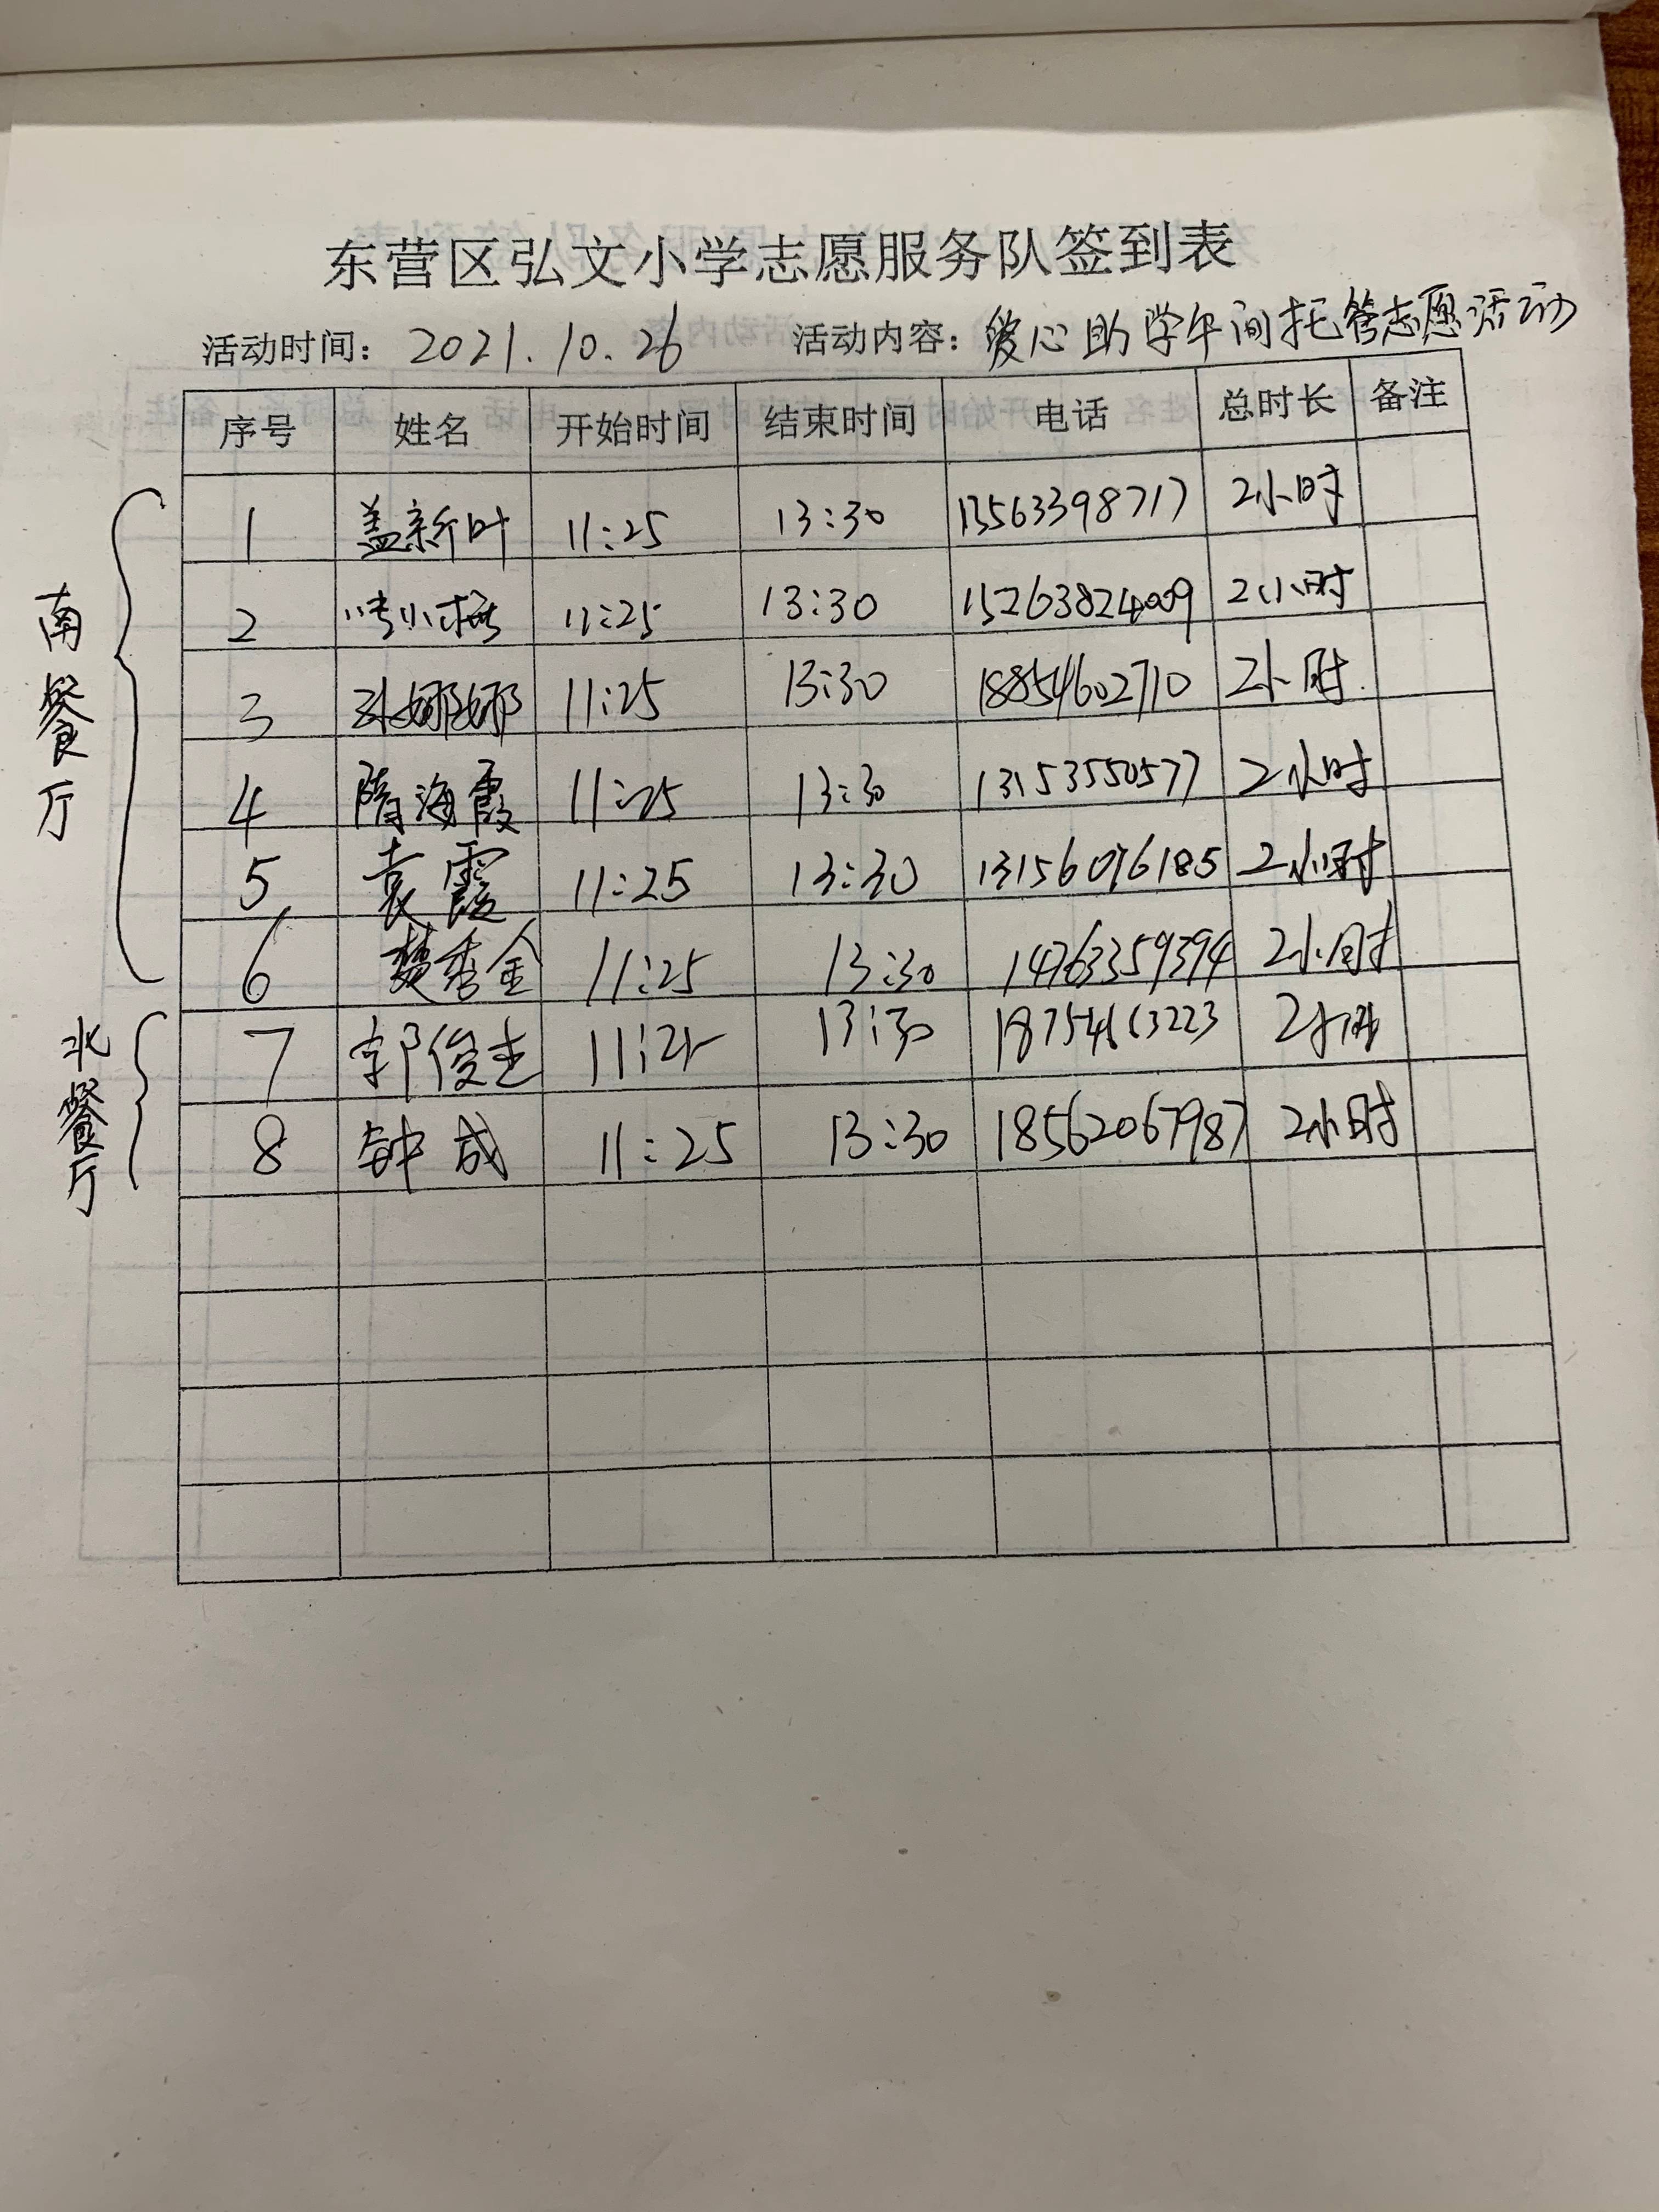 东营区弘文小学志愿服务队签到表
活动时间: 2021.10.26 活动内容: 爱心助学午间托管志愿活动
序号 姓名 开始时间 结束时间 电话 总时长 备注
南餐厅
1 盖新叶 11:25 13:30 13563398717 2小时
2 11:25 13:30 15263824009 2小时
3 孙娜娜 11:25 13:30 18854602710 2小时
4 隋海霞 11:25 13:30 13153550577 2小时
5 袁霞 11:25 13:30 13156076185 2小时
6 楚秀金 11:25 13:30 14763359394 2小时
北餐厅
7 郭俊志 11:25 13:30 18754663223 2小时
8 钟成 11:25 13:30 18562067987 2小时